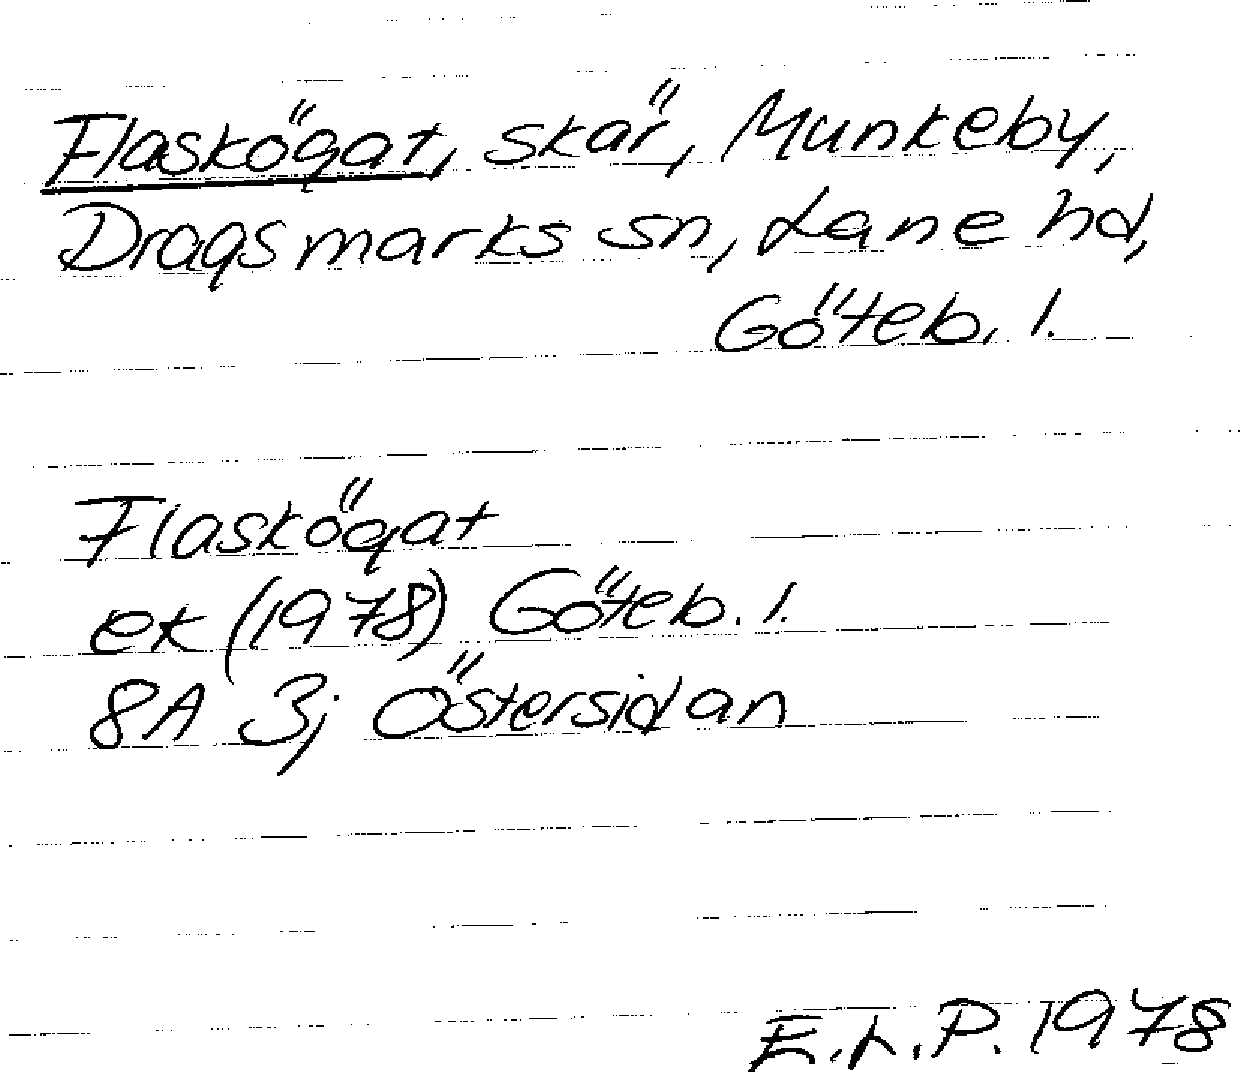 Flaskögat, skär, Munkeby,
Dragsmarks sn, Lane hd,
Göteb. l.
Flaskögat
ek (1978) Göteb. l.
8A 3; Östersidan
E.L.P. 1978